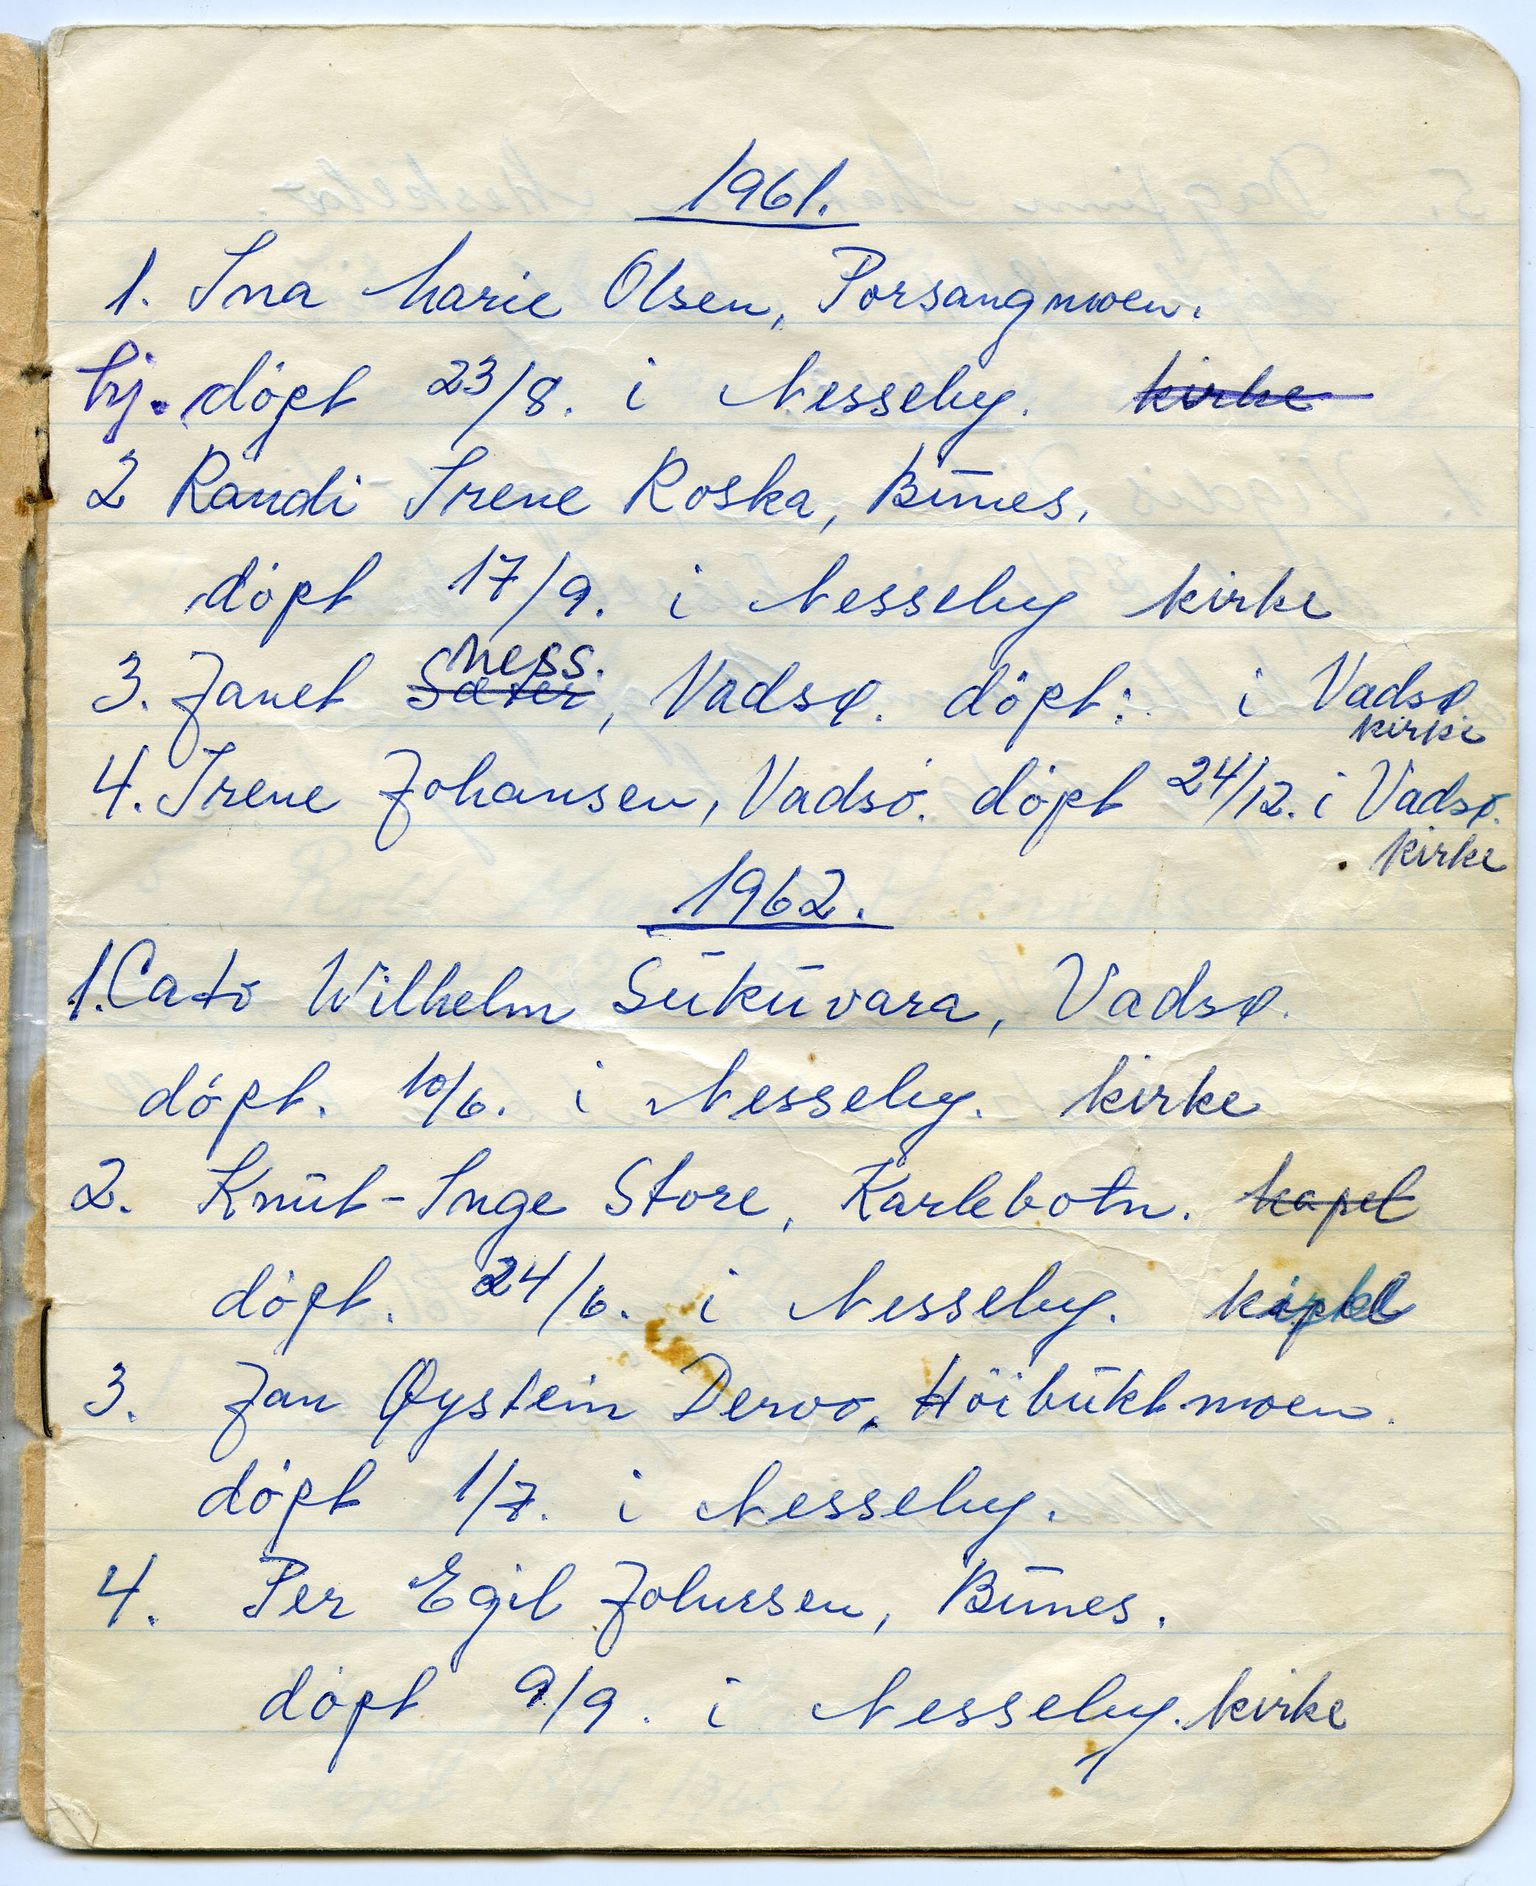 1961.
1. Ina Marie Olsen, Porsangmoen.
hj. döpt 23/8. i Nesseby. kirke
2 Randi Irene Roska, Būnes.
döpt 17/9. i Nesseby kirke
ness.
3. Janet Sæter, Vadsø. döpt: i Vadsø
kirke
4. Irene Johansen, Vadsö. döpt 24/12. i Vadsø.
kirke
1962.
1. Cato Wilhelm Sūkūvara, Vadsø.
döpt. 10/6. i Nesseby. kirke
2. Knūt-Inge Store, Karlebotn. kapel
döpt. 24/6. i Nesseby.
3. Jan Øystein Dervo, Höibūktmoen.
döpt 1/7. i Nesseby.
4. Per Egil Johnsen, Būnes.
döpt 9/9. i Nesseby. kirke